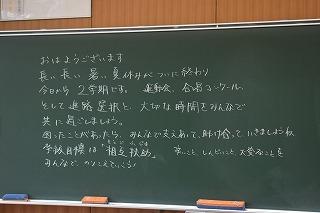 おはようございます
長い長い暑い夏休みがついに終わり
今日から2学期です。運動会、合唱コンクール
そして進路選択と、大切な時間をみんなで
共に過ごしましょう。
困ったことがあったら、みんなで支えあって、助け合っていきましょうね
学校目標は"相互扶助。 辛いこと、しんどいこと、大変なことを
みんなで、のりこえていこう!